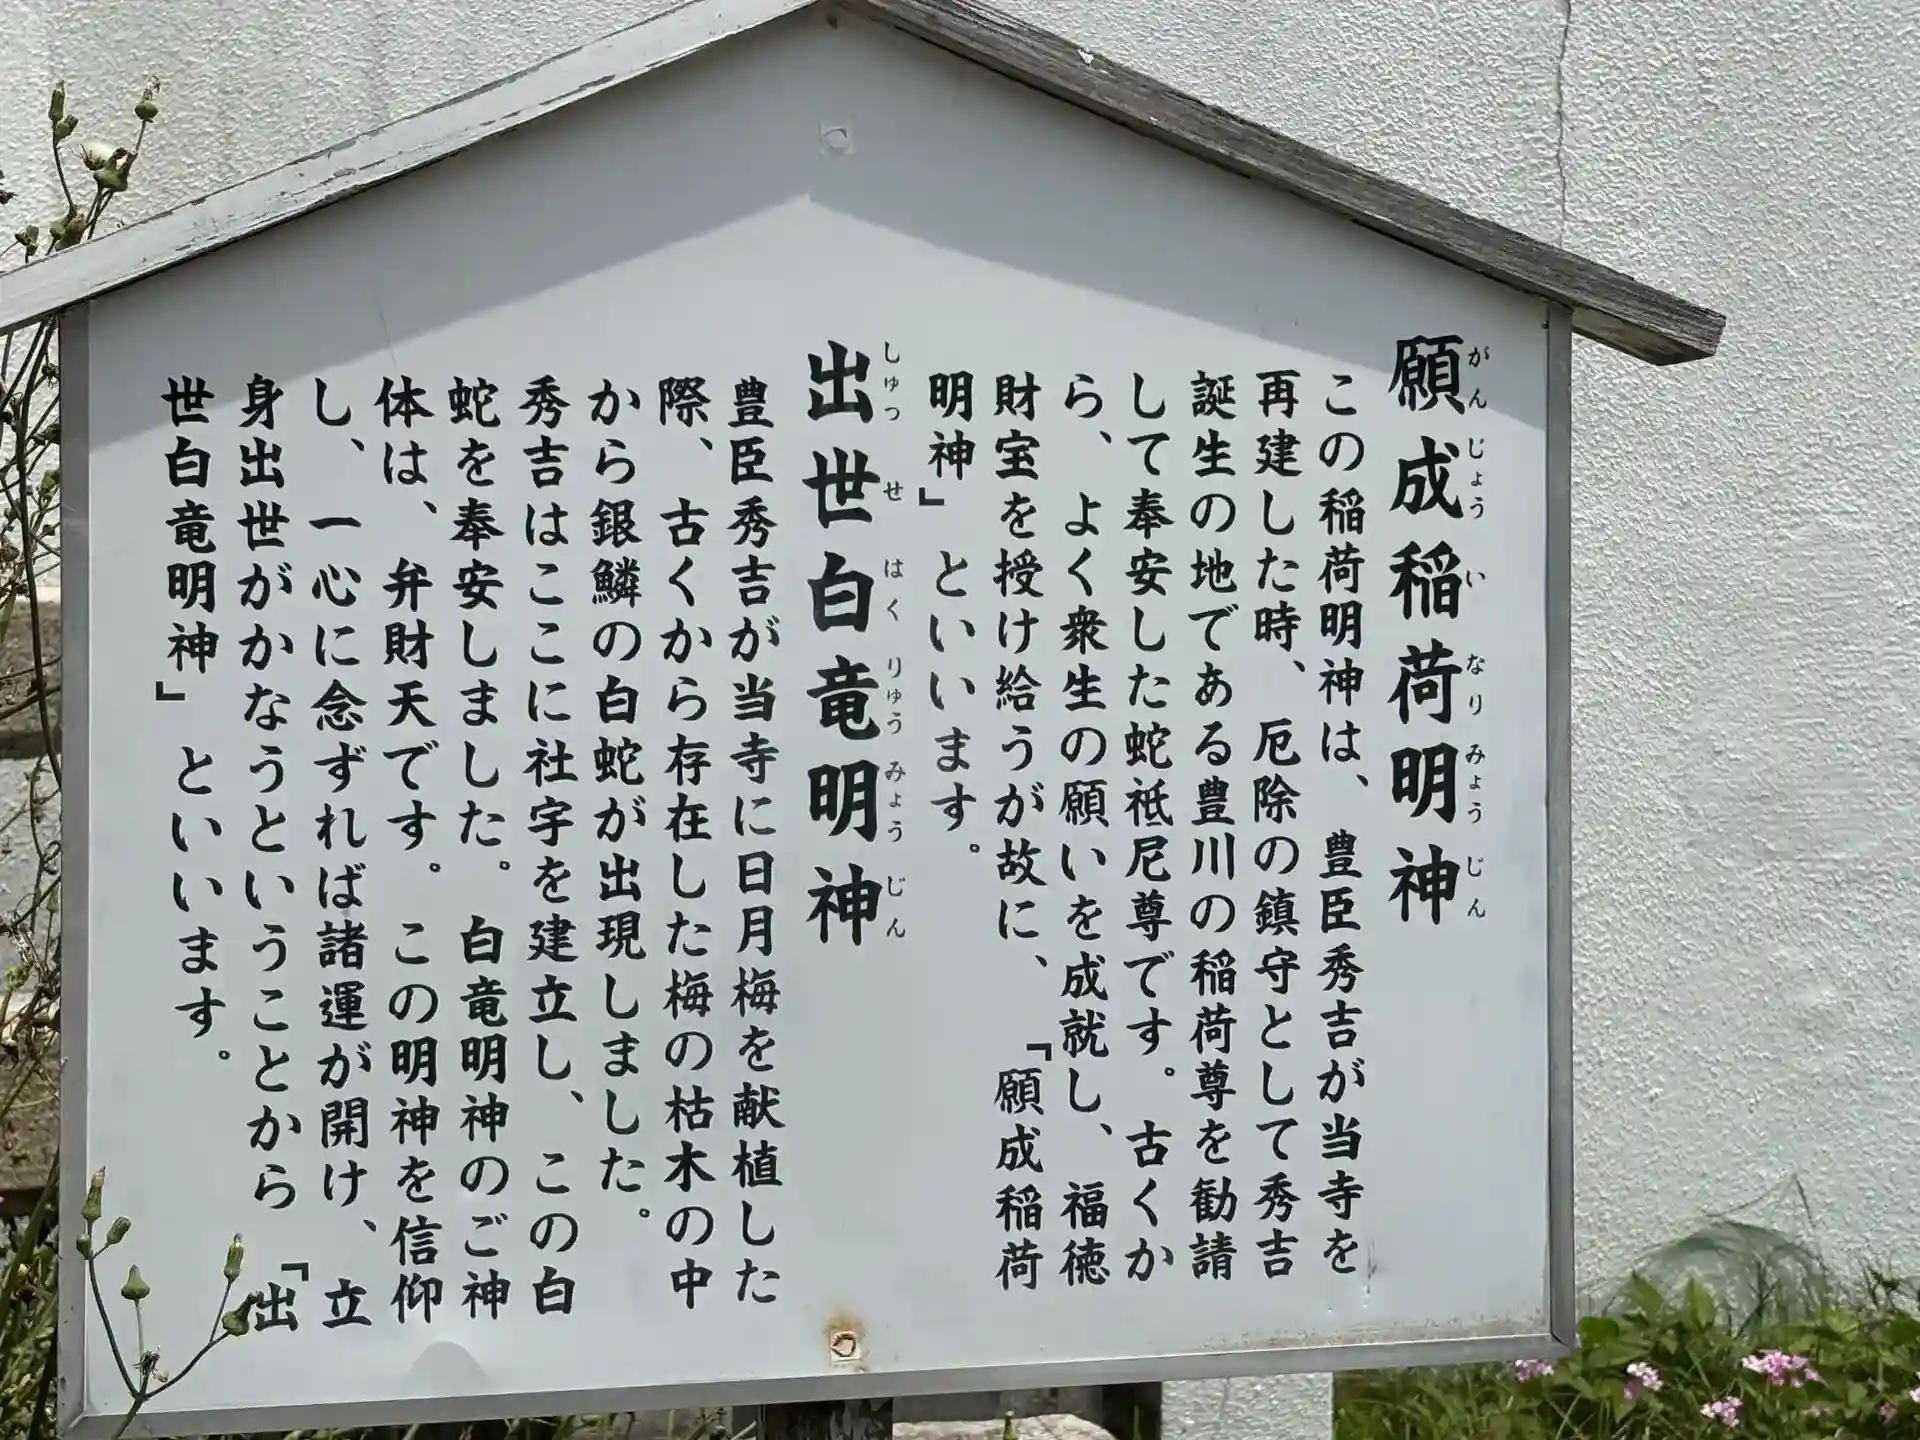 願成稲荷明神
がんじょういなりみょうじん
この稲荷明神は、豊臣秀吉が当寺を
再建した時、厄除の鎮守として秀吉
誕生の地である豊川の稲荷尊を勧請
して奉安した蛇祗尼尊です。古くか
ら、よく衆生の願いを成就し、福徳
財宝を授け給うが故に、「願成稲荷
明神」といいます。
出世白竜明神
しゅつせはくりゅうみょうじん
豊臣秀吉が当寺に日月梅を献植した
際、古くから存在した梅の枯木の中
から銀鱗の白蛇が出現しました。
秀吉はここに社宇を建立し、この白
蛇を奉安しました。白竜明神のご神
体は、弁財天です。この明神を信仰
し、一心に念ずれば諸運が開け、立
身出世がかなうということから「出
世白竜明神」といいます。